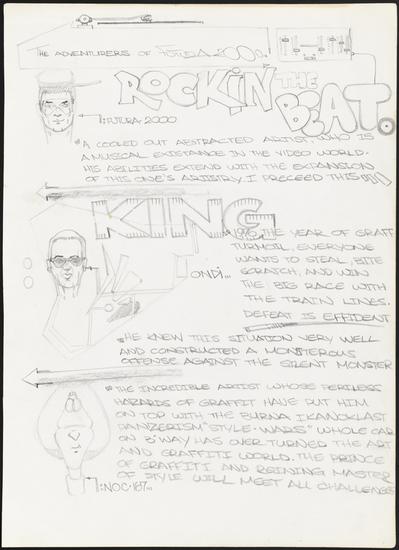 THE ADVENTURERS OF FUTURA 2000
ROCKIN THE BEAT.
1:FUTURA 2000
A COOLED OUT ABSTRACTED ARTIST WHO IS
A MUSICAL EXISTANCE IN THE VIDEO WORLD.
HIS ABILITIES EXTEND WITH THE EXPANSION
OF THIS ONE'S ARTISTRY. I PRECEED THIS
KING
1976 THE YEAR OF GRAFF
TURMOIL, EVERYONE
WANTS TO STEAL, BITE
SCRATCH, AND WIN
THE BIG RACE WITH
THE TRAIN LINES.
DEFEAT IS EFFIDENT
ONDI...
HE KNEW THIS SITUATION VERY WELL
AND CONSTRUCTED A MONSTEROUS
OFFENSE AGAINST THE SILENT MONSTER
THE INCREDIBLE ARTIST WHOSE PERILESS
HAZARDS OF GRAFFITI HAVE PUT HIM
ON TOP WITH THE BURNA IKANOKLAST
PANZERISM "STYLE-WARS" WHOLE CAR
ON 3'WAY HAS OVER TURNED THE ART
AND GRAFFITI WORLD. THE PRINCE
OF GRAFFITI AND REINING MASTER
OF STYLE WILL MEET ALL CHALLENGES
1:NOC-167...